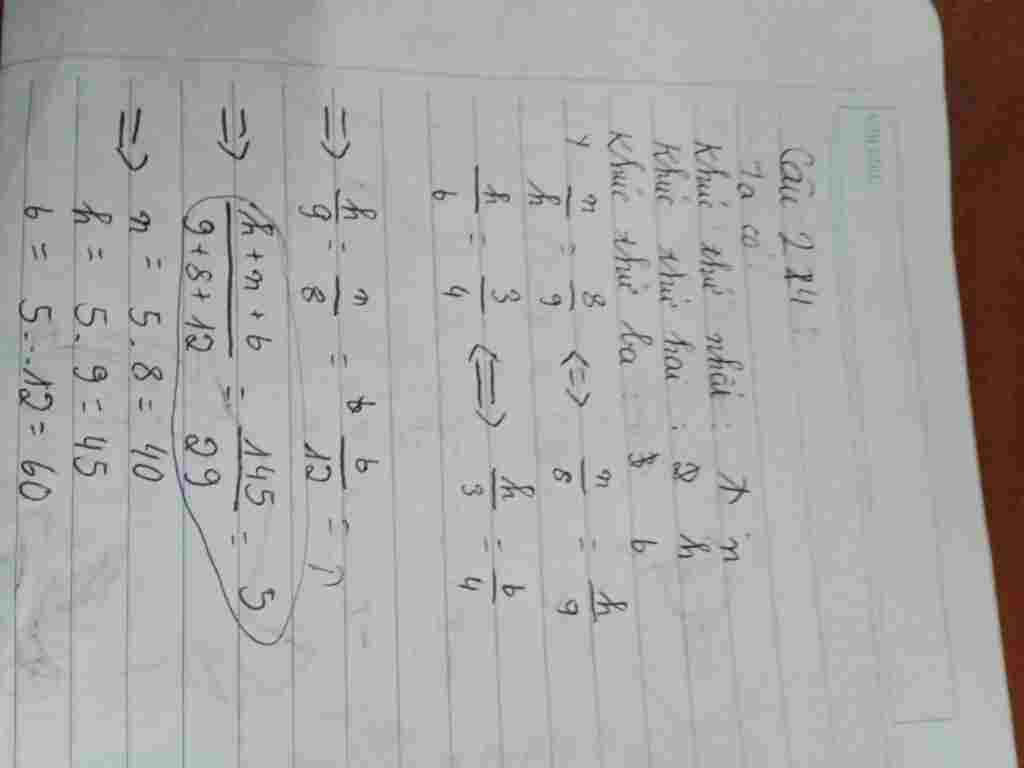 Câu 214:
Ta có:
Khúc thứ nhất: n
Khúc thứ hai: h
Khúc thứ ba: b
n/h = 8/9 <=> n/8 = h/9
h/b = 3/4 <=> h/3 = b/4
=> h/9 = n/8 = b/12 =
=> (h+n+b)/(9+8+12) = 145/29 = 5
=> n = 5.8 = 40
h = 5.9 = 45
b = 5.12 = 60